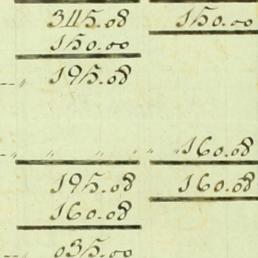 345.08 150.00
150.00
195.08
160.08
195.08 160.08
160.08
035.00